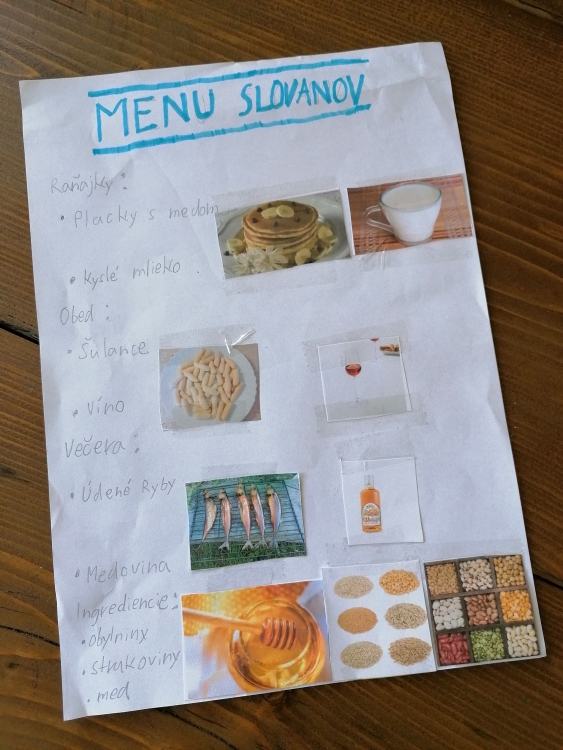 MENU SLOVANOV
Raňajky:
• Placky s medom
• kyslé mlieko
Obed:
• Šulance
• Víno
Večera:
• Údené Ryby
• Medovina
Ingrediencie:
• obylniny
• strukoviny
• med